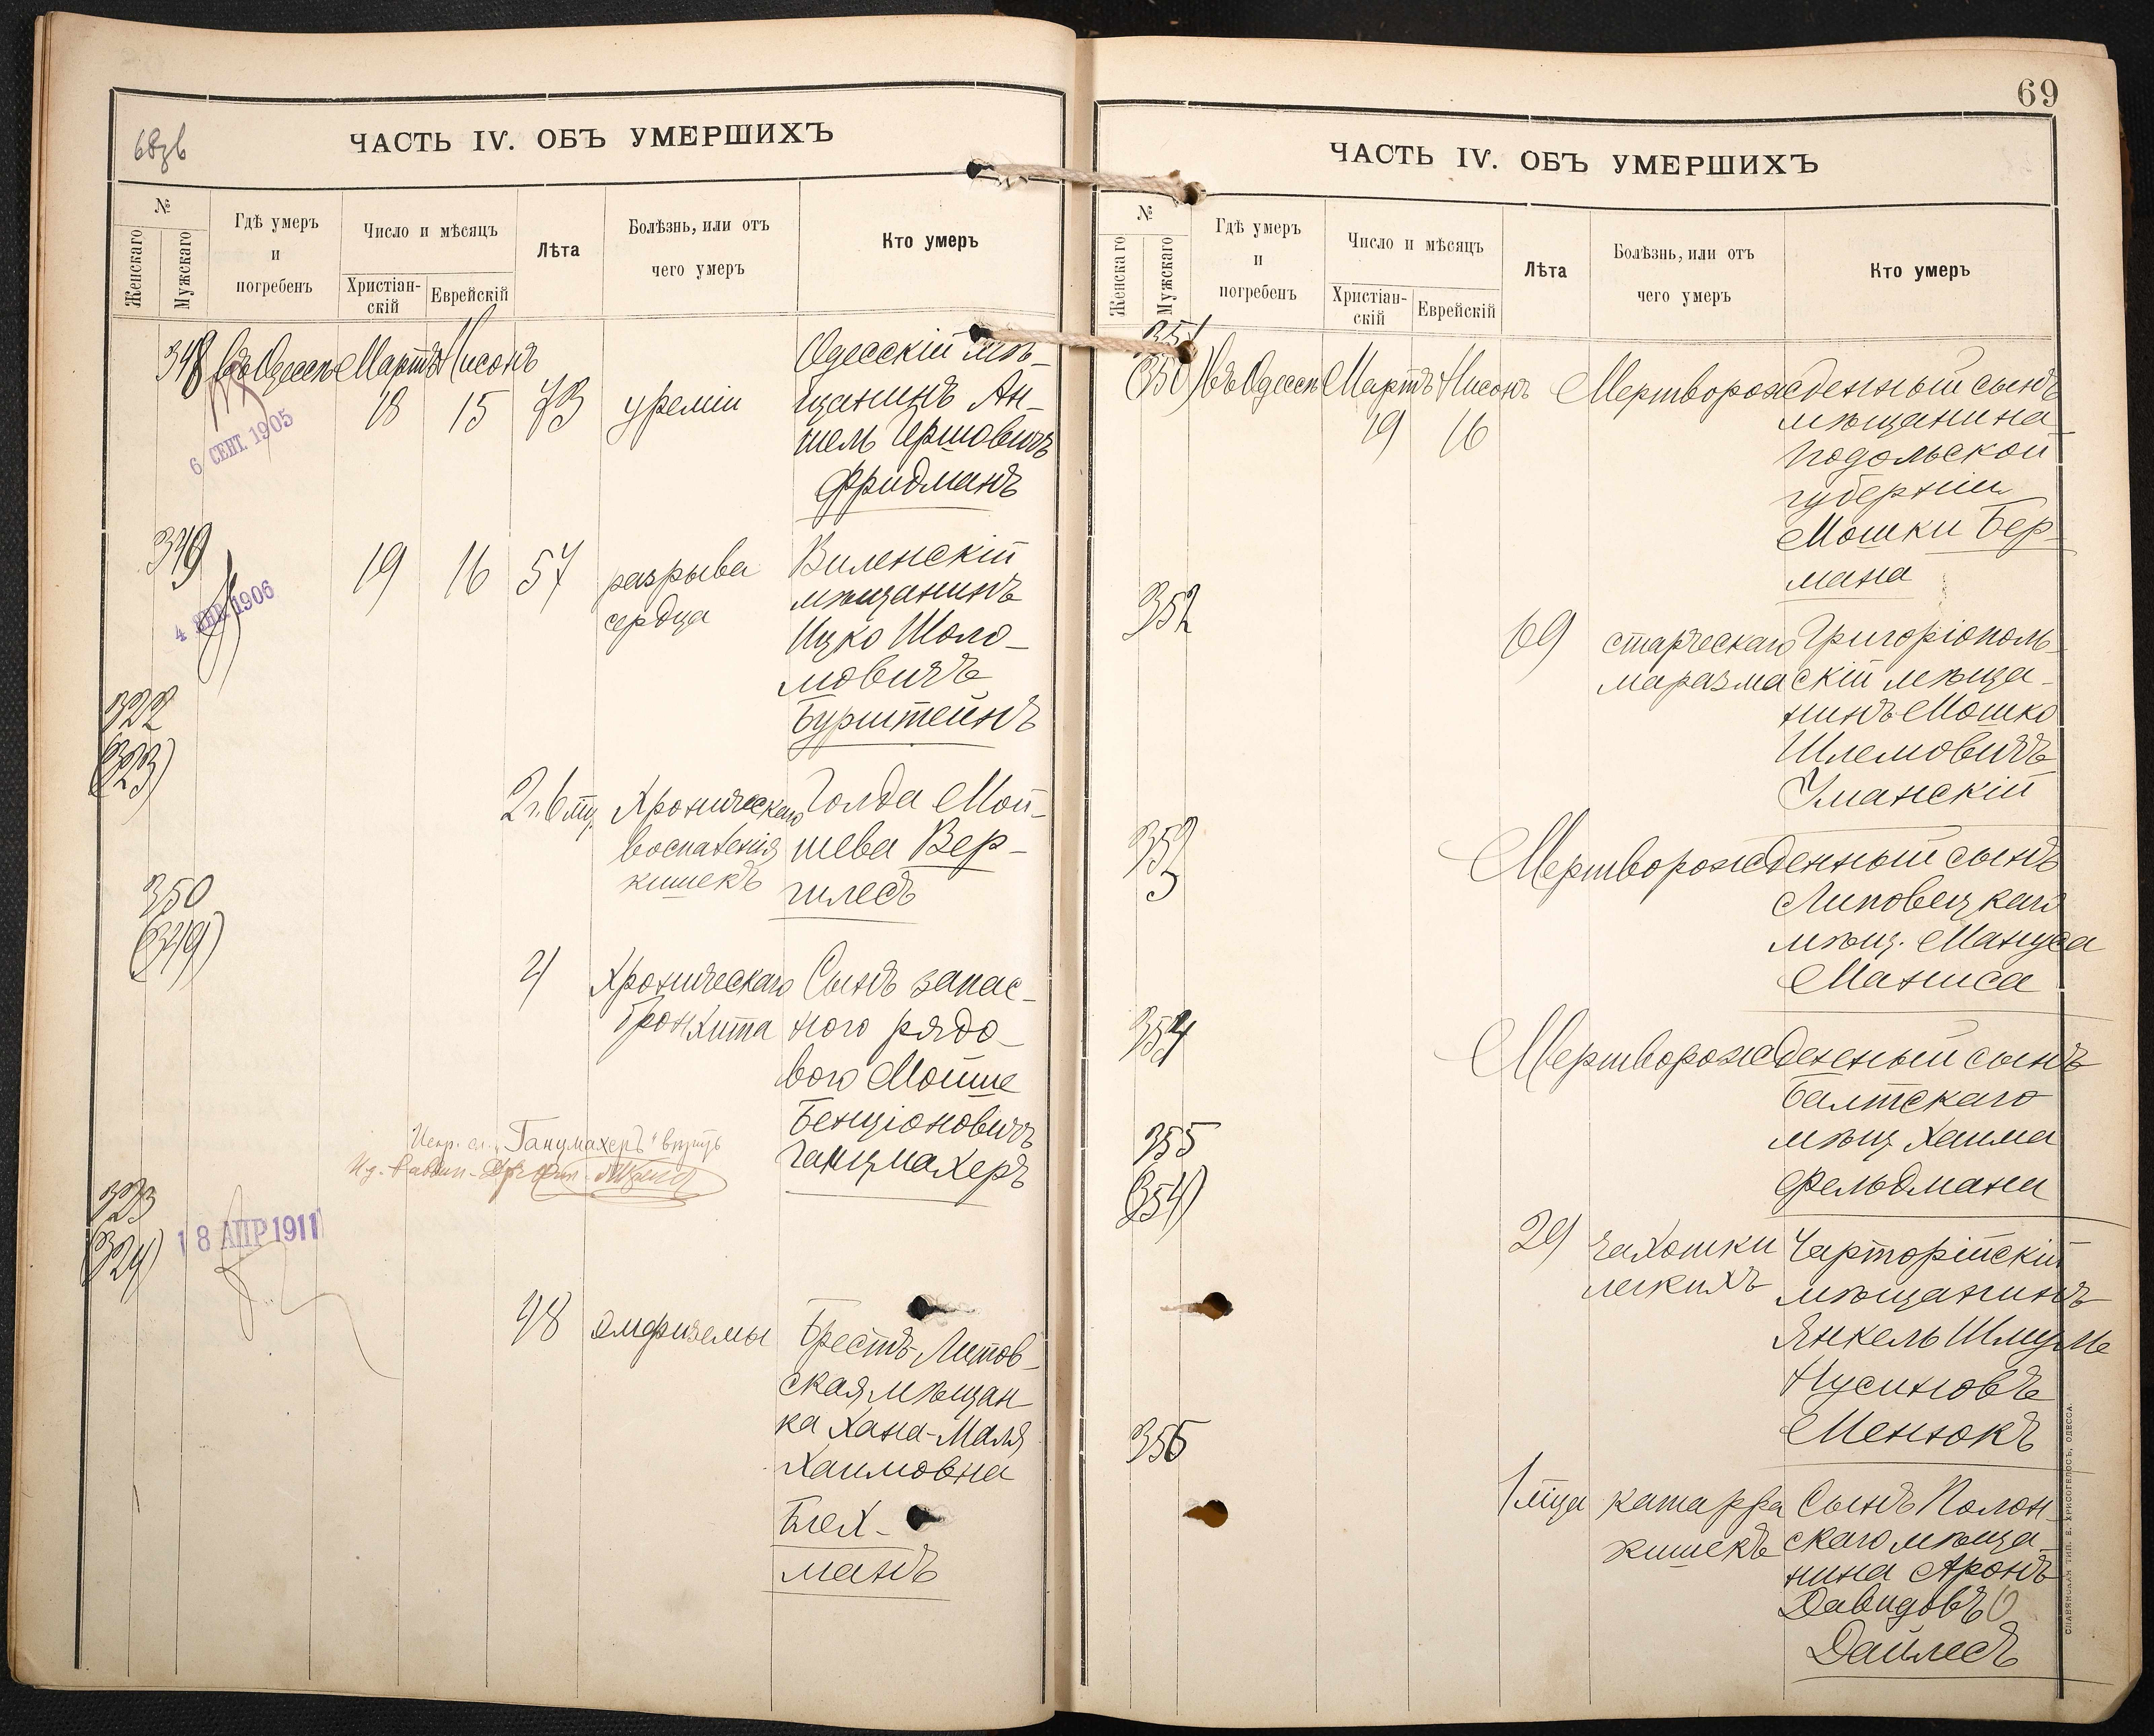 68об
ЧАСТЬ IV. ОБЪ УМЕРШИХЪ
№
Женскаго
Мужскаго
Гдѣ умеръ
и
погребенъ
Число и мѣсяцъ
Христіан-
скій
Еврейскій
Лѣта
Болѣзнь, или отъ
чего умеръ
Кто умеръ
348 въ Одессѣ Мартъ Нисонъ
18 15 73 уреміи
Одесскій мѣ-
щанинъ Ан-
шель Гершовичъ
Фридманъ
6 СЕНТ. 1905
349
19 16 57 разрыва
сердца
Виленскій
мѣщанинъ
Ицко Шоло-
мовичъ
Бурштейнъ
4 ЯНВ. 1906
322
(323)
2 г. 6 мц. Хроническаго
воспаленія
кишекъ
Голда Мой-
шева Вер-
гилесъ
350
(349)
4 Хроническаго
бронхита
Сынъ запас-
ного рядо-
вого Мойше
Бенціоновичъ
Ганцмахеръ
Испр. сл. „Ганцмахеръ“ вѣрить
323
(324)
18 АПР 1911
48 эмфиземы
Брестъ-Литов-
ская мѣщан-
ка Хана-Маля
Хаимовна
Блех-
манъ
69
ЧАСТЬ IV. ОБЪ УМЕРШИХЪ
№
Женскаго
Мужскаго
Гдѣ умеръ
и
погребенъ
Число и мѣсяцъ
Христіан-
скій
Еврейскій
Лѣта
Болѣзнь, или отъ
чего умеръ
Кто умеръ
351
(350) въ Одессѣ Мартъ Нисонъ
19 16
Мертворожденный сынъ
мѣщанина
Подольской
губерніи
Мошки Бер-
мана
352
69 старческаго
маразма
Григоріополь-
скій мѣща-
нинъ Мошко
Шлемовичъ
Уманскій
353
Мертворожденный сынъ
Липовецкаго
мѣщ. Мануса
Маниса
354
Мертворожденный сынъ
Балтскаго
мѣщ. Хаима
Фельдмана
355
(354)
29 чахотки
легкихъ
Чарторійскій
мѣщанинъ
Янкель Шмуль
Нусиновъ
Менюкъ
356
1 мца катарра
кишекъ
Сынъ Полон-
скаго мѣща-
нина Аронъ
Давидовъ
Дайлесъ
СЛАВЯНСКАЯ ТИП. Е. ХРИСОГЕЛОСЪ, ОДЕССА.